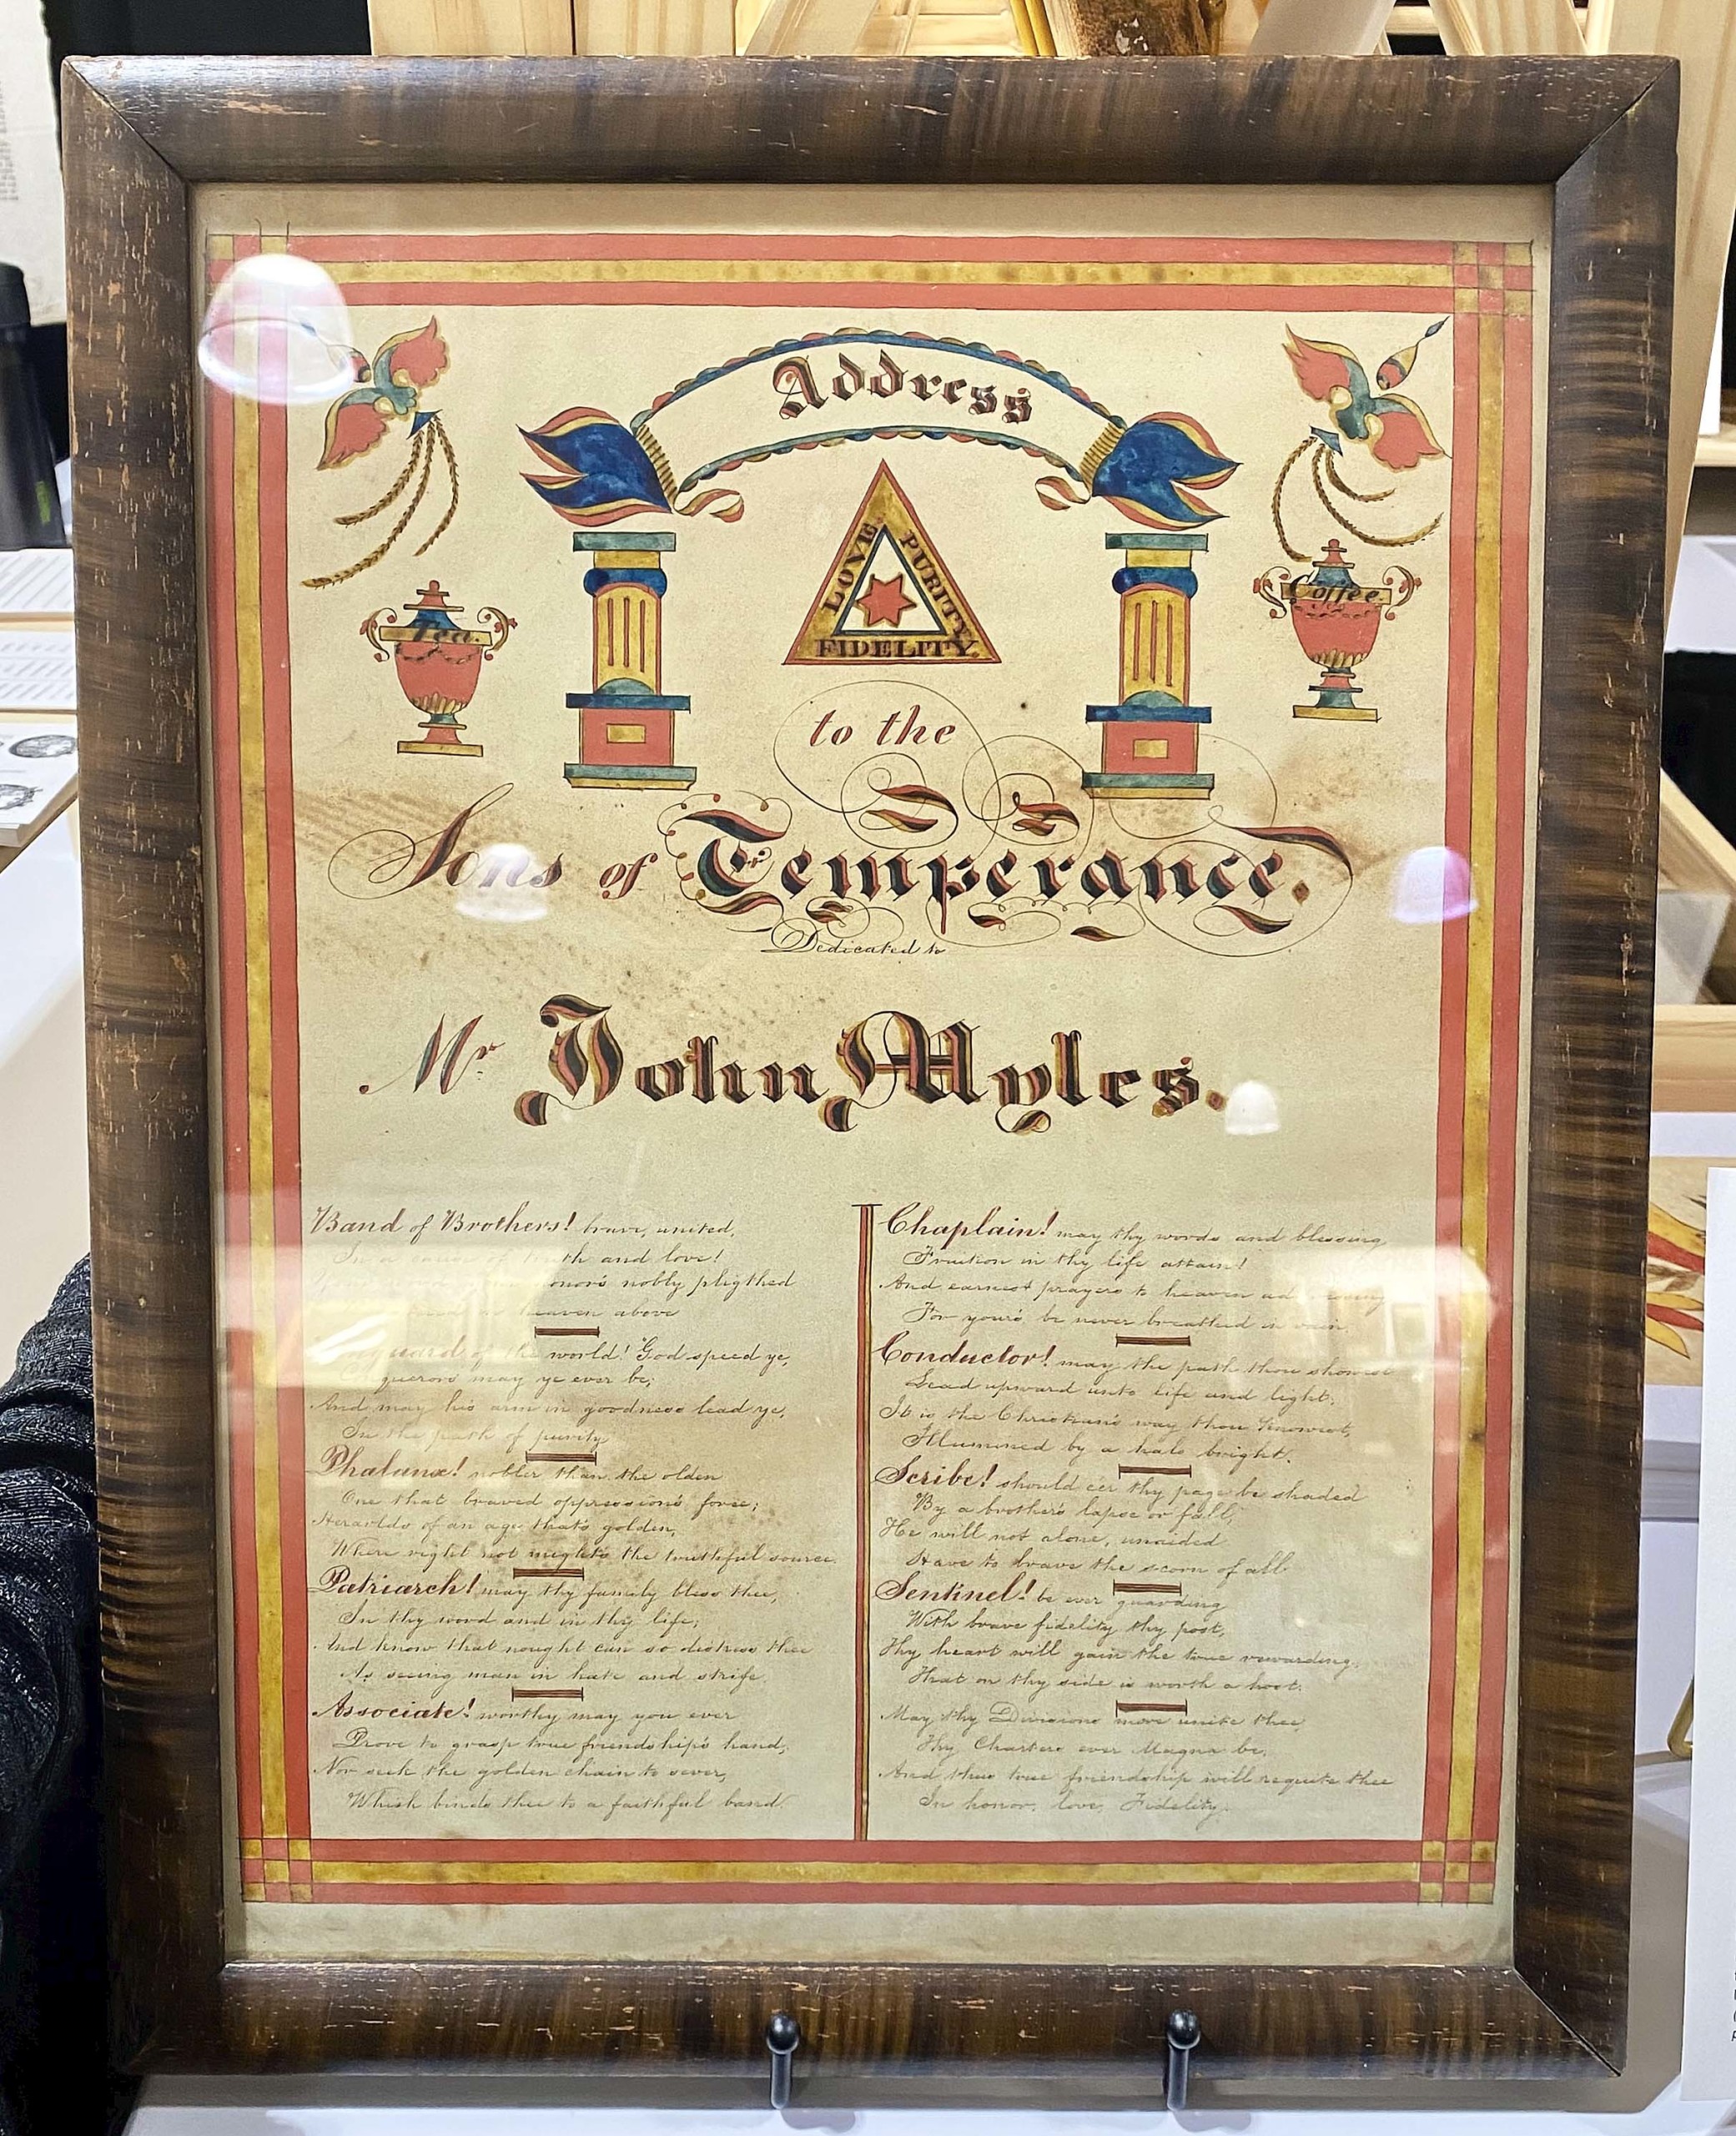 Address
LOVE
PURITY
FIDELITY
Tea.
Coffee.
to the
Sons of Temperance.
Dedicated to
Mr John Myles.
Band of Brothers! brave, united,
and love!
nobly pligthed
heaven above
of the world! God speed ye,
may ye ever be;
And may his arm in goodness lead ye,
In the path of purity
Phalanx! nobler than the olden
One that braved oppression's force;
Heralds of an age that's golden,
Where right not might's the truthful source.
Patriarch! may thy family bless thee,
In thy word and in thy life;
And know that nought can so distress thee
As seeing man in hate and strife.
Associate! worthy may you ever
Prove to grasp true friendship's hand,
Nor seek the golden chain to sever,
Which binds thee to a faithful band.
Chaplain! may thy words and blessing
Fruition in thy life attain!
And earnest prayers to heaven
For your's be never breathed in vain.
Conductor! may the path thou showest
Lead upward unto life and light;
It is the Christian's way thou knowest,
Illumined by a halo bright.
Scribe! should eer thy page be shaded
By a brother's lapse or fall,
He will not alone, unaided
Have to brave the scorn of all
Sentinel! be ever guarding
With brave fidelity thy post,
Thy heart will gain the true rewarding,
That on thy side is worth a host.
May thy Divisions more unite thee
Thy Charters ever Magna be,
And thus true friendship will requite thee
In honor, love, Fidelity.